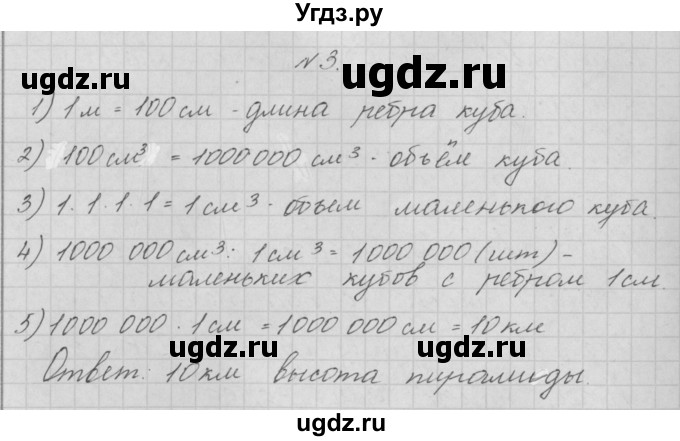 Угдз.ру
N 3.
ugdz.ru
1) 1 м = 100 см - длина ребра куба.
2) 100 см³ = 1000 000 см³ - объём куба.
ugdz.ru
ugdz.ru
3) 1.1.1.1 = 1 см³ - объем маленького куба.
4) 1000 000 см³ : 1 см³ = 1000 000 (шт) -
маленьких кубов с ребром 1 см.
5) 1000 000 · 1 см = 1000 000 см = 10 км
ugdz.ru
ugdz.ru
Ответ: 10 км высота пирамиды.
ugdz.ru
ugdz.ru